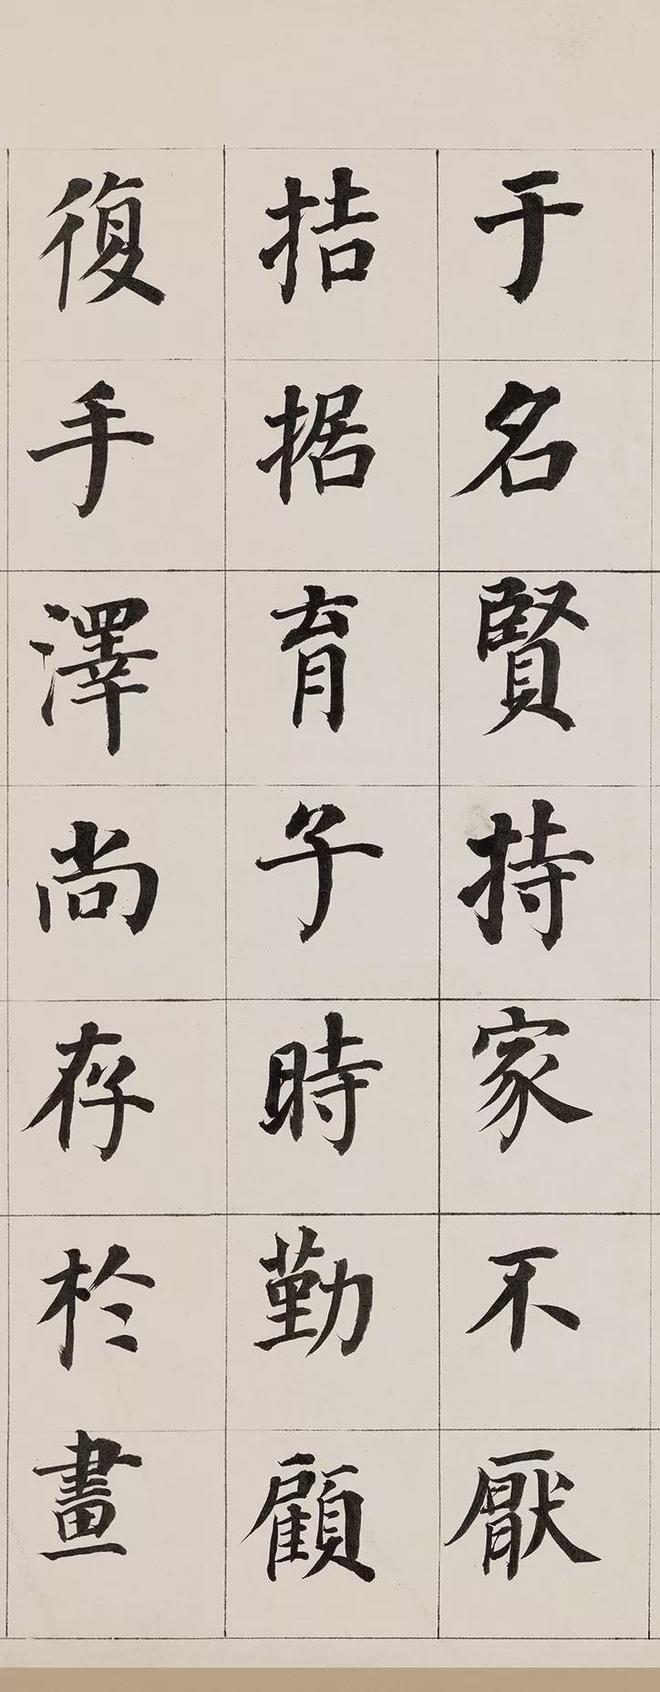 于名賢持家不厭
拮据育子時勤顧
復手澤尚存於畫